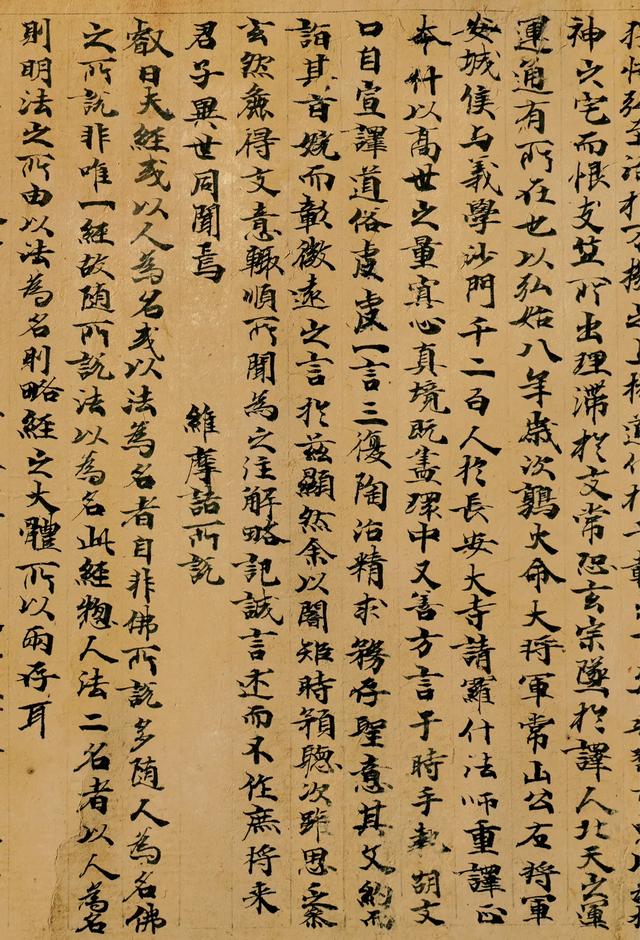 神之宅而恨支竺所出理滯扵文常恐玄宗墜扵譯人北天之運
運通有所在也以弘始八年歲次鶉火命大將軍常山公右將軍
安城侯与義學沙門千二百人扵長安大寺請羅什法師重譯正
本什以高世之量冥心真境既盡環中又善方言于時手執胡文
口自宣譯道俗虔虔一言三復陶冶精求務存聖意其文約而
詣其旨婉而彰微遠之言扵茲顯然余以闇短時預聽次雖思乏參
玄然麁得文意輙順所聞為之注解略記誠言述而不作庶将来
君子異世同聞焉
維摩詰所説
叡曰夫經或以人為名或以法為名者自非佛所説多随人為名佛
之所説非唯一經故随所説法以為名此經惣人法二名者以人為名
則明法之所由以法為名則略經之大體所以兩存耳